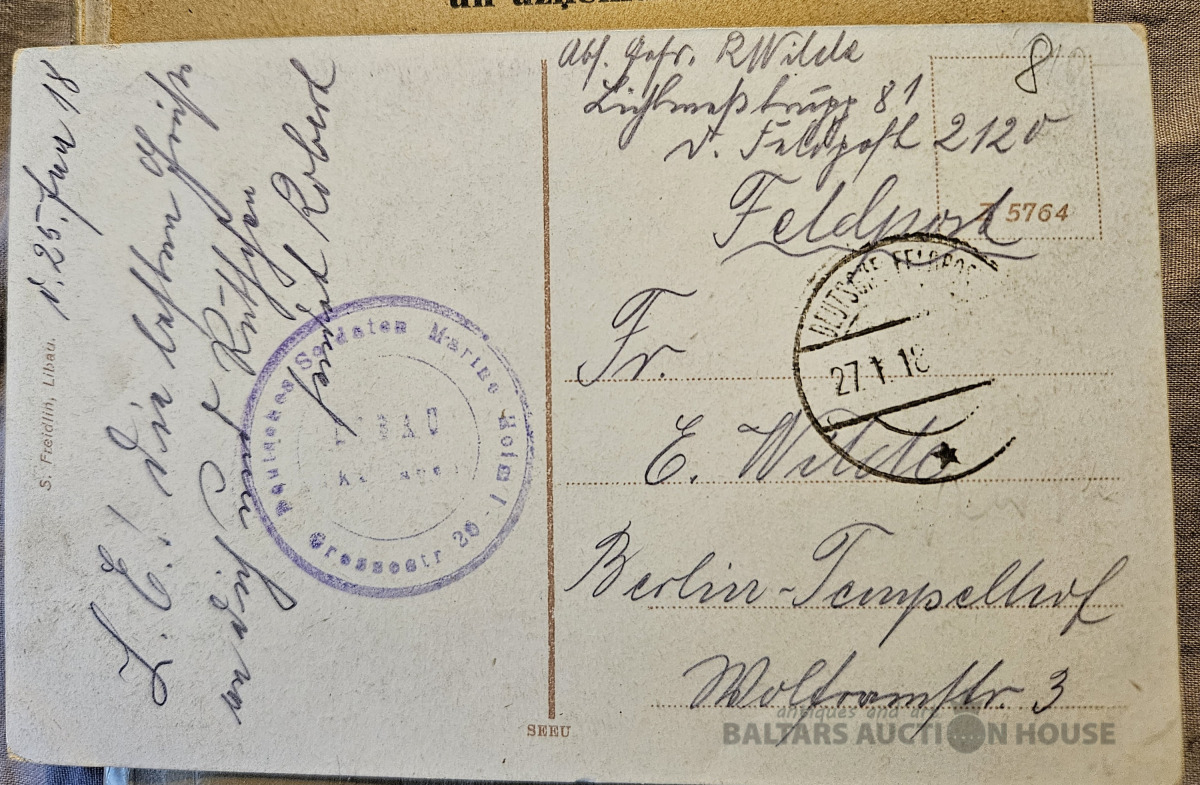 d. 25. Jan 18
L. E.! Die besten Grüße
und Küsse
sendet Robert
S. Freidlin, Libau.
Deutsches Soldaten Marine Heim I
LIBAU
Grossestr 26
SEEU
Abs. Gefr. R Wilde
Lichtmeßtrupp 81
D. Feldpost 2120
8
Feldpost
5764
DEUTSCHE FELDPOS
27 1 18
Fr.
E. Wilde
Berlin-Tempelhof
Wolframstr. 3
antiques and art
BALTARS AUCTION HOUSE